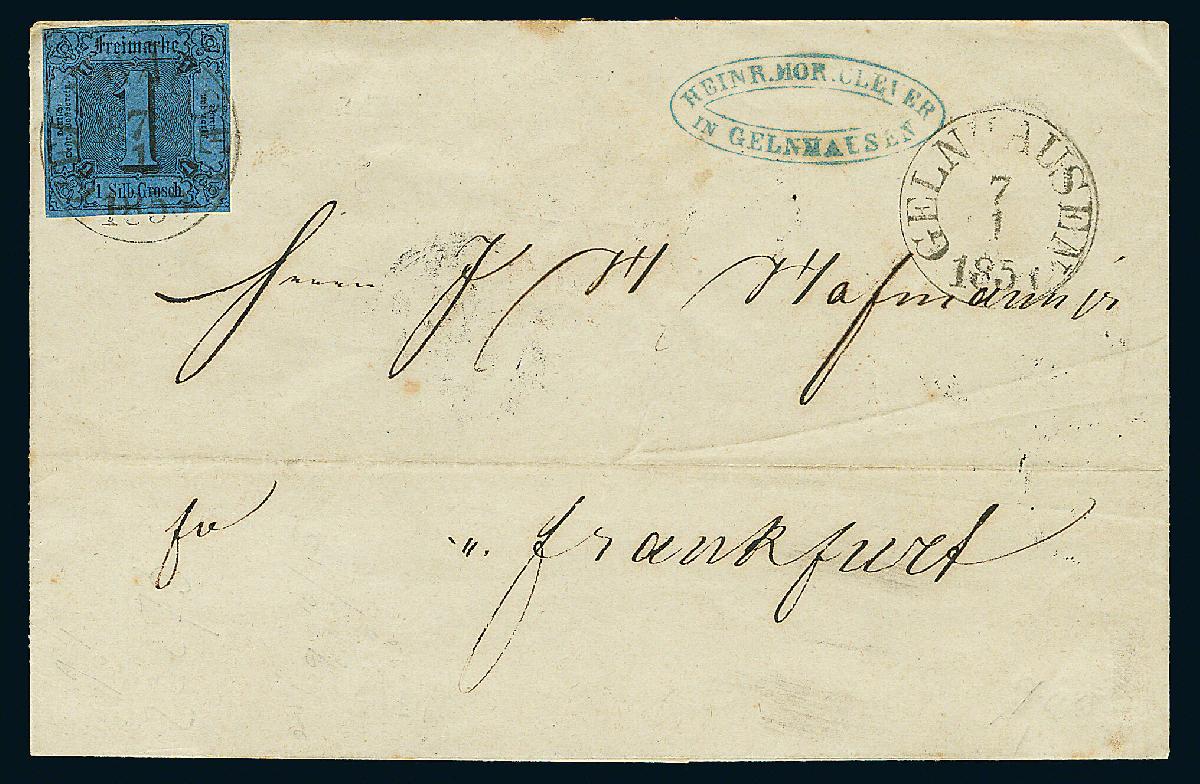 Freimarke
1
7
1
1 Silb. Grosch.
185
HEINR. MOR. CLEVER
IN GELNHAUSEN
GELNHAUSEN
7
1
185
Herrn J H Hofmann jr
fo
" Frankfurt